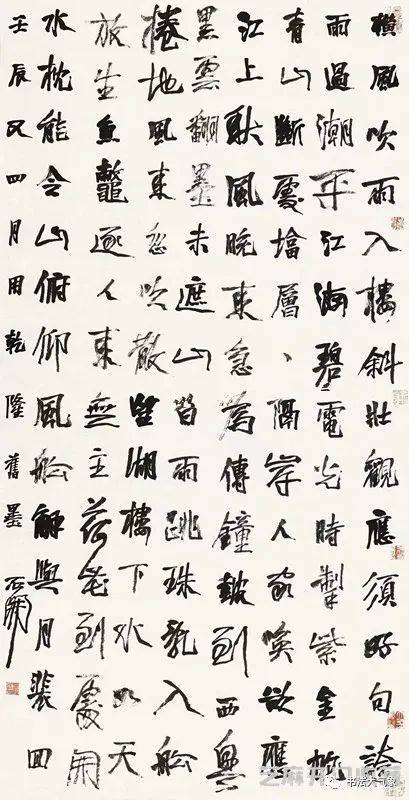 橫風吹雨入樓斜壯觀應須好句誇
雨過潮平江海碧電光時掣紫金蛇
青山斷處塔層、隔岸人家喚欲應
江上秋風晚來急為傳鐘鼓到西興
黑雲翻墨未遮山白雨跳珠亂入船
捲地風來忽吹散望湖樓下水如天
放生魚鼈逐人來無主荷花到處開
水枕能令山俯仰風船解與月裴回
壬辰又四月用乾隆舊墨 石開
书法大气象